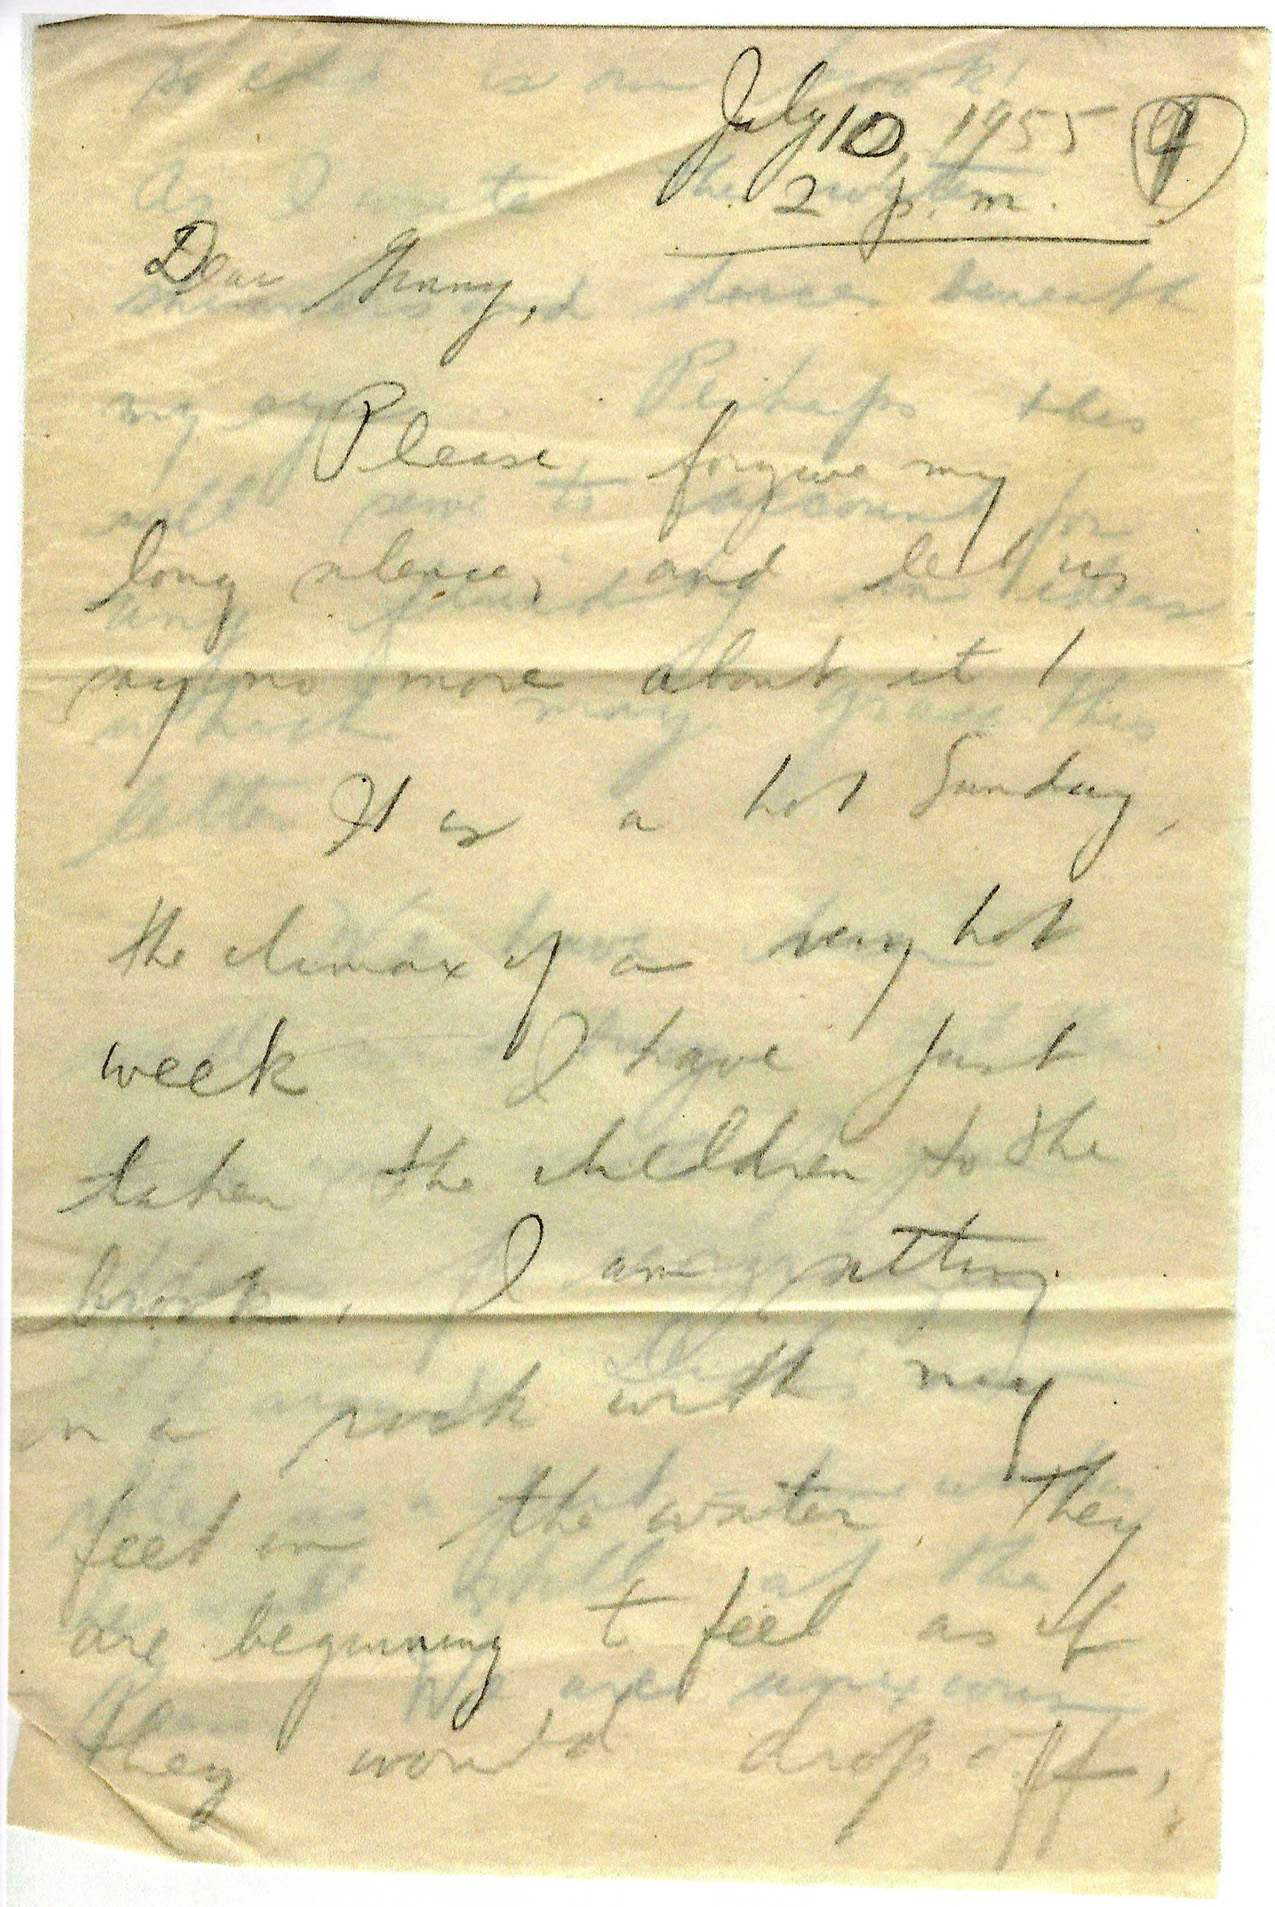 July 10, 1955
2 p.m.
Dear Granny,
Please forgive my
long silence, and let us
say no more about it!
It is a hot Sunday,
the climax of a very hot
week I have just
taken the children to the
brook, I am sitting
on a rock with my
feet in the water They
are beginning to feel as if
they would drop off,